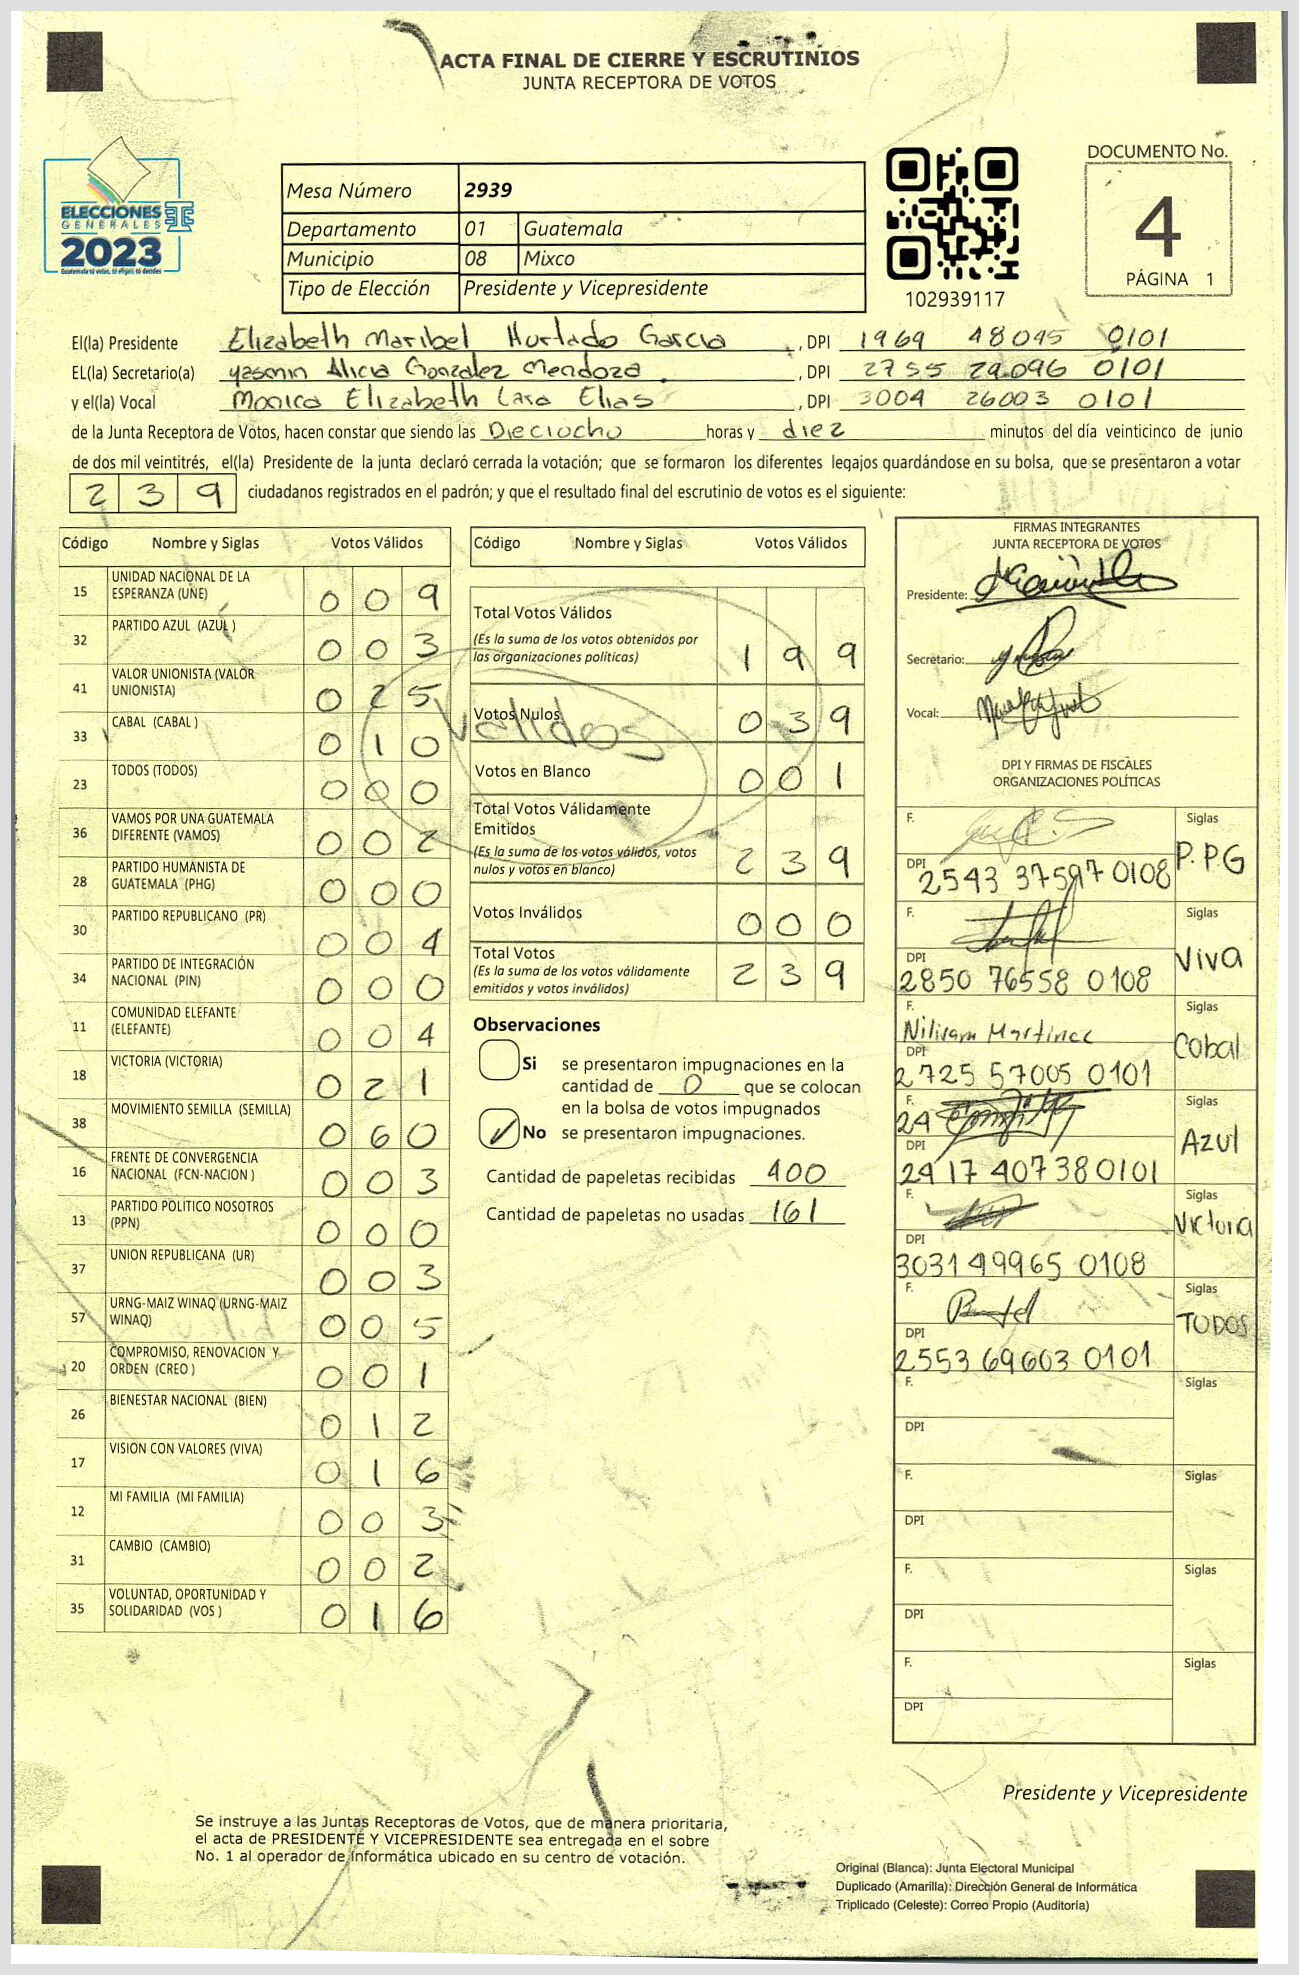 ACTA FINAL DE CIERRE Y ESCRUTINIOS
JUNTA RECEPTORA DE VOTOS
ELECCIONES
GENERALES
2023
Mesa Número 2939
Departamento 01 Guatemala
Municipio 08 Mixco
Tipo de Elección Presidente y Vicepresidente
102939117
DOCUMENTO No.
4
PÁGINA 1
El(la) Presidente Elizabeth Maribel Hurtado Garcia, DPI 1969 48045 0101
EL(la) Secretario(a) yasmin Alicia Gonzalez Mendoza, DPI 2755 29096 0101
y el(la) Vocal Monica Elizabeth Lara Elias, DPI 3004 26003 0101
de la Junta Receptora de Votos, hacen constar que siendo las Dieciocho horas y diez minutos del día veinticinco de junio
de dos mil veintitrés, el(la) Presidente de la junta declaró cerrada la votación; que se formaron los diferentes legajos guardándose en su bolsa, que se presentaron a votar
239 ciudadanos registrados en el padrón; y que el resultado final del escrutinio de votos es el siguiente:
Código Nombre y Siglas Votos Válidos
15 UNIDAD NACIONAL DE LA ESPERANZA (UNE) 009
32 PARTIDO AZUL (AZUL ) 003
41 VALOR UNIONISTA (VALOR UNIONISTA) 025
33 CABAL (CABAL ) 010
23 TODOS (TODOS) 000
36 VAMOS POR UNA GUATEMALA DIFERENTE (VAMOS) 002
28 PARTIDO HUMANISTA DE GUATEMALA (PHG) 000
30 PARTIDO REPUBLICANO (PR) 004
34 PARTIDO DE INTEGRACIÓN NACIONAL (PIN) 000
11 COMUNIDAD ELEFANTE (ELEFANTE) 004
18 VICTORIA (VICTORIA) 021
38 MOVIMIENTO SEMILLA (SEMILLA) 060
16 FRENTE DE CONVERGENCIA NACIONAL (FCN-NACION ) 003
13 PARTIDO POLITICO NOSOTROS (PPN) 000
37 UNION REPUBLICANA (UR) 003
57 URNG-MAIZ WINAQ (URNG-MAIZ WINAQ) 005
20 COMPROMISO, RENOVACION Y ORDEN (CREO ) 001
26 BIENESTAR NACIONAL (BIEN) 012
17 VISION CON VALORES (VIVA) 016
12 MI FAMILIA (MI FAMILIA) 003
31 CAMBIO (CAMBIO) 002
35 VOLUNTAD, OPORTUNIDAD Y SOLIDARIDAD (VOS ) 016
Código Nombre y Siglas Votos Válidos
Total Votos Válidos 199
(Es la suma de los votos obtenidos por
las organizaciones políticas)
Votos Nulos 039
Validos
Votos en Blanco 001
Total Votos Válidamente
Emitidos 239
(Es la suma de los votos válidos, votos
nulos y votos en blanco)
Votos Inválidos 000
Total Votos 239
(Es la suma de los votos válidamente
emitidos y votos inválidos)
Observaciones
Si se presentaron impugnaciones en la
cantidad de 0 que se colocan
en la bolsa de votos impugnados
No se presentaron impugnaciones.
Cantidad de papeletas recibidas 400
Cantidad de papeletas no usadas 161
FIRMAS INTEGRANTES
JUNTA RECEPTORA DE VOTOS
Presidente:
Secretario:
Vocal:
DPI Y FIRMAS DE FISCALES
ORGANIZACIONES POLÍTICAS
F. Siglas
DPI 2543 37597 0108 P.PG
F. Siglas
DPI 2850 76558 0108 Viva
F. Nilivam Martinez Siglas
DPI 2725 57005 0101 Cabal
F. 24 Siglas
DPI 2417 40738 0101 Azul
F. Siglas
DPI 3031 49965 0108 Victoria
F. Siglas
DPI 2553 69603 0101 TODOS
F. Siglas
DPI
F. Siglas
DPI
F. Siglas
DPI
F. Siglas
DPI
Presidente y Vicepresidente
Se instruye a las Juntas Receptoras de Votos, que de manera prioritaria,
el acta de PRESIDENTE Y VICEPRESIDENTE sea entregada en el sobre
No. 1 al operador de Informática ubicado en su centro de votación.
Original (Blanca): Junta Electoral Municipal
Duplicado (Amarilla): Dirección General de Informática
Triplicado (Celeste): Correo Propio (Auditoría)